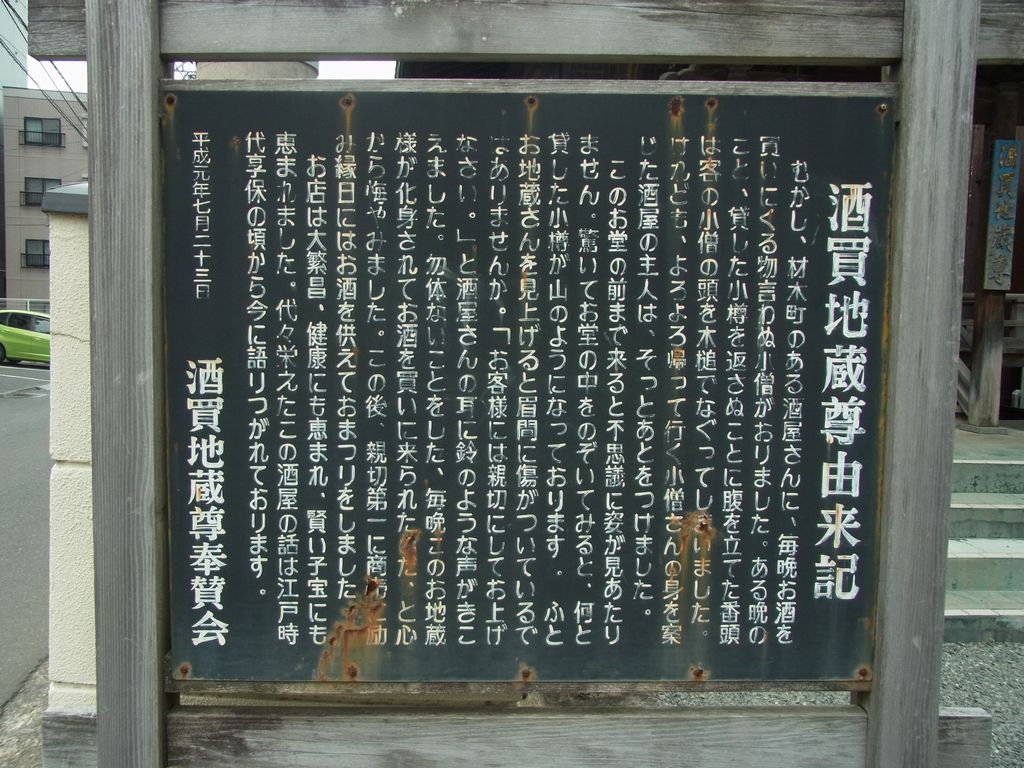 酒買地蔵尊由来記
むかし、材木町のある酒屋さんに、毎晩お酒を
買いにくる物言わぬ小僧がおりました。ある晩の
こと、貸した小樽を返さぬことに腹を立てた番頭
は客の小僧の頭を木槌でなぐってしまいました。
けれども、よろよろ帰って行く小僧さんの身を案
じた酒屋の主人は、そっとあとをつけました。
このお堂の前まで来ると不思議に姿が見あたり
ません。驚いてお堂の中をのぞいてみると、何と
貸した小樽が山のようになっております。ふと
お地蔵さんを見上げると眉間に傷がついているで
はありませんか。「お客様には親切にしてお上げ
なさい。」と酒屋さんの耳に鈴のような声がきこ
えました。勿体ないことをした、毎晩このお地蔵
様が化身されてお酒を買いに来られた だ、と心
から悔やみました。この後、親切第一に商売に励
み縁日にはお酒を供えておまつりをしました
お店は大繁昌、健康にも恵まれ、賢い子宝にも
恵まれました。代々栄えたこの酒屋の話は江戸時
代享保の頃から今に語りつがれております。
平成元年七月二十三日
酒買地蔵尊奉賛会
酒買地蔵尊